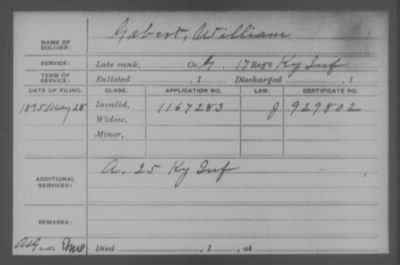 NAME OF SOLDIER: Gabert, William
SERVICE: Late rank, Co. G, 17 Reg't Ky Inf
TERM OF SERVICE: Enlisted , 1 Discharged , 1
DATE OF FILING. CLASS. APPLICATION NO. LAW. CERTIFICATE NO.
1895 May 28 Invalid, 1167283 J 929802
Widow,
Minor,
ADDITIONAL SERVICES: A. 25 Ky Inf
REMARKS:
Died , 1 , at